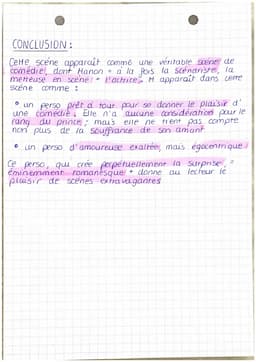 CONCLUSION :
Cette scène apparaît comme une véritable scène de
comédie, dont Manon = à la fois la scénariste, la
metteuse en scène et l'actrice. M apparaît dans cette
scène comme :
• un perso prêt à tout pour se donner le plaisir d'
une comédie. Elle n'a aucune considération pour le
rang du prince, mais elle ne tient pas compte
non plus de la souffrance de son amant.
• un perso d'amoureuse exaltée, mais égocentrique !
Ce perso, qui crée perpétuellement la surprise, =
éminemment romanesque + donne au lecteur le
plaisir de scènes extravagantes